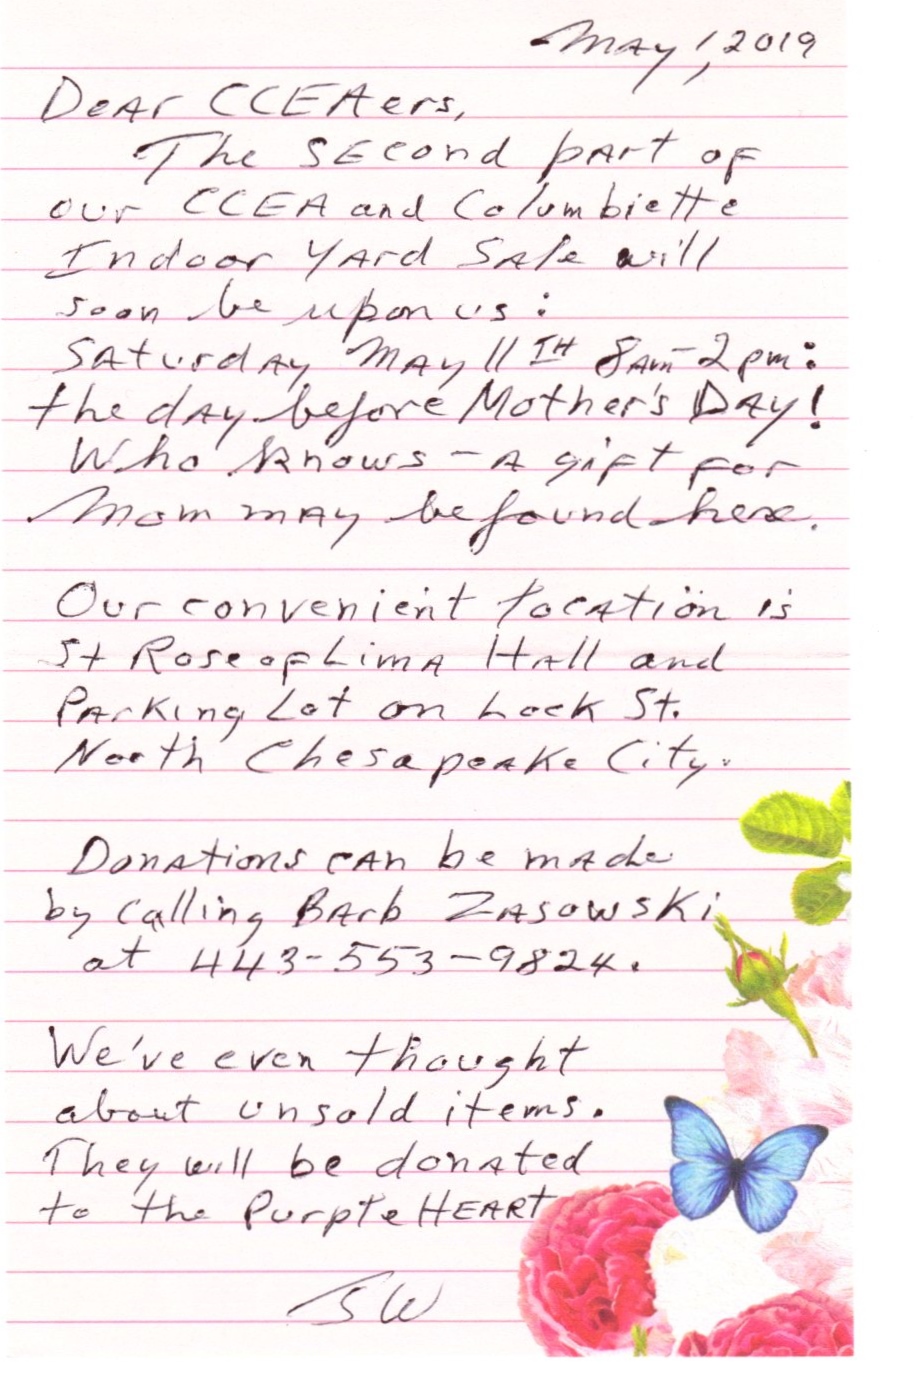 May 1, 2019
Dear CCEAers,
The Second part of
our CCEA and Columbiette
Indoor Yard Sale will
soon be upon us:
Saturday May 11TH 8am-2pm:
the day before Mother's Day!
Who knows - a gift for
Mom may be found here.
Our convenient location is
St Rose of Lima Hall and
Parking Lot on Lock St.
North Chesapeake City.
Donations can be made
by calling Barb Zasowski
at 443-553-9824.
We've even thought
about unsold items.
They will be donated
to the Purple HEART
BW